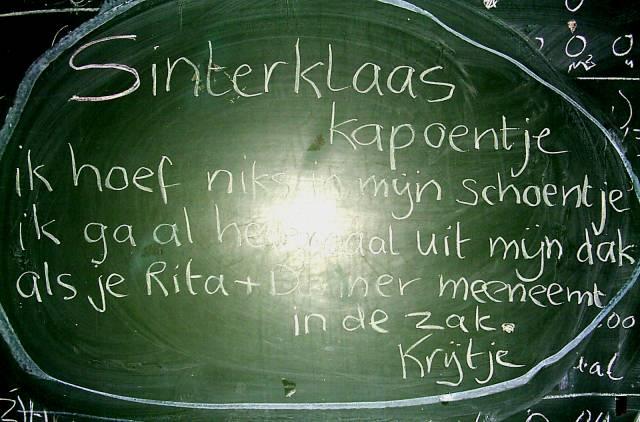 Sinterklaas
kapoentje
ik hoef niks in mijn schoentje
ik ga al helemaal uit mijn dak
als je Rita + meeneemt
in de zak.
Krijtje